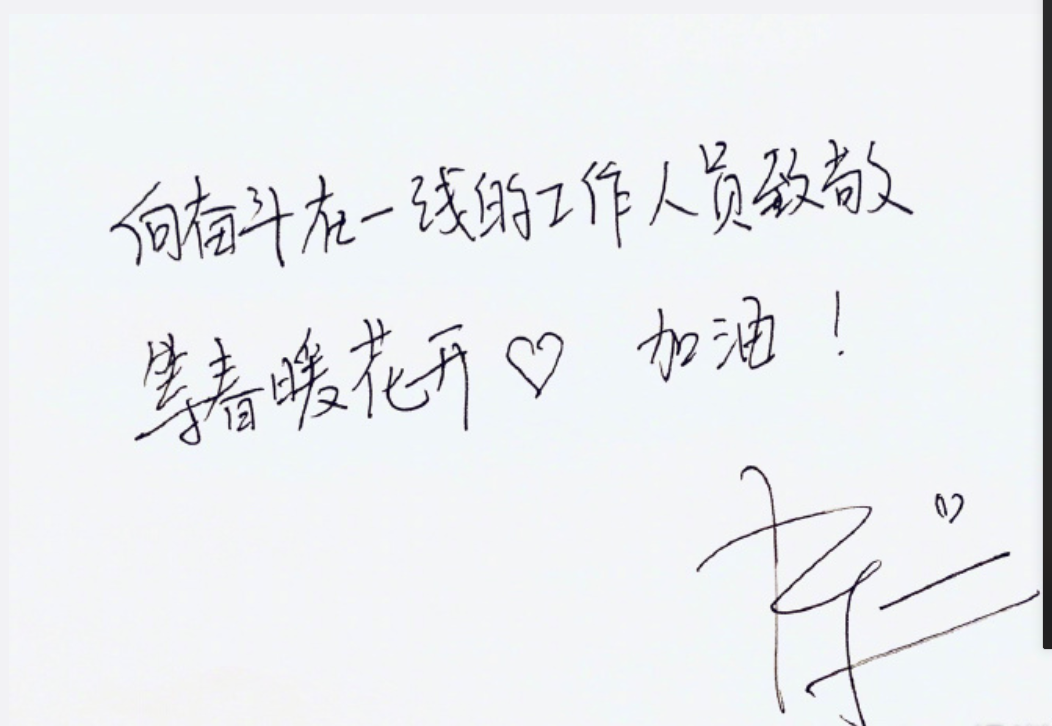 向奋斗在一线的工作人员致敬
等春暖花开♡ 加油！